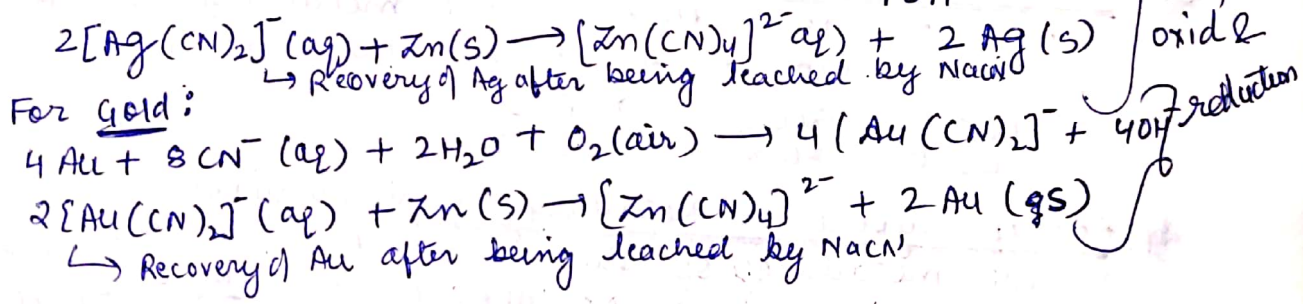 2[Ag(CN)₂]⁻(aq) + Zn(s) → [Zn(CN)₄]²⁻ aq) + 2 Ag (s)
↳ Recovery of Ag after being leached by NaCN
oxid &
reduction
For Gold:
4 Au + 8 CN⁻ (aq) + 2H₂O + O₂(air) → 4 [Au (CN)₂]⁻ + 4OH⁻
2[Au(CN)₂]⁻(aq) + Zn(s) → [Zn(CN)₄]²⁻ + 2 Au (s)
↳ Recovery of Au after being leached by NaCN